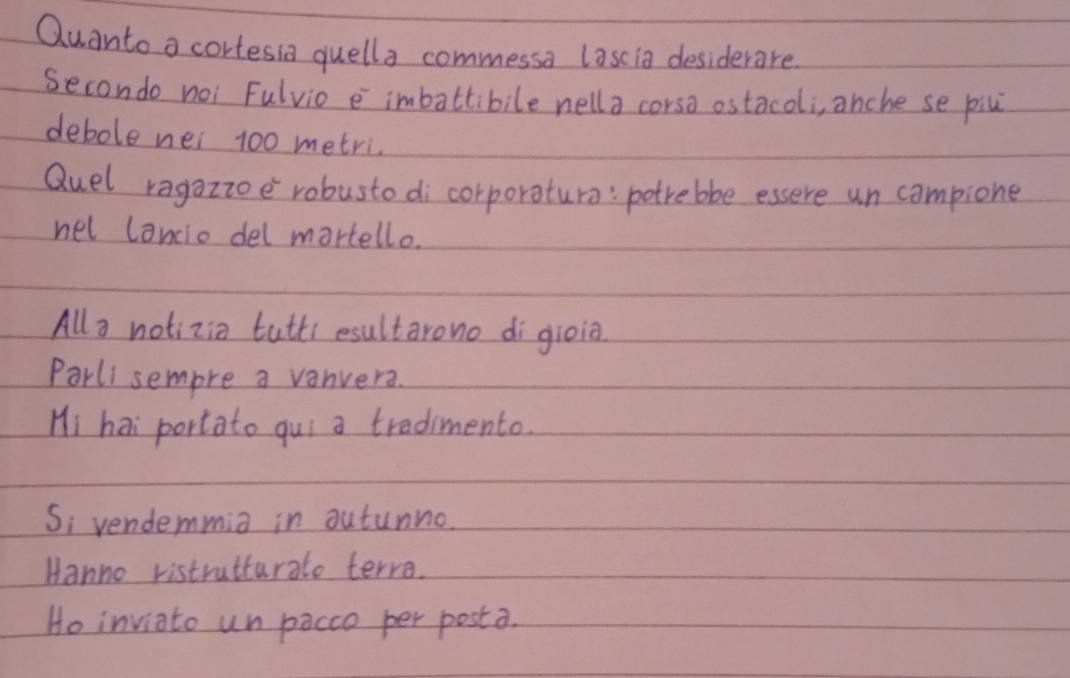 Quanto a cortesia quella commessa lascia desiderare.
Secondo noi Fulvio è imbattibile nella corsa ostacoli, anche se più
debole nei 100 metri.
Quel ragazzo è robusto di corporatura: potrebbe essere un campione
nel lancio del martello.
Alla notizia tutti esultarono di gioia.
Parli sempre a vanvera.
Mi hai portato qui a tradimento.
Si vendemmia in autunno.
Hanno ristrutturato terra.
Ho inviato un pacco per posta.